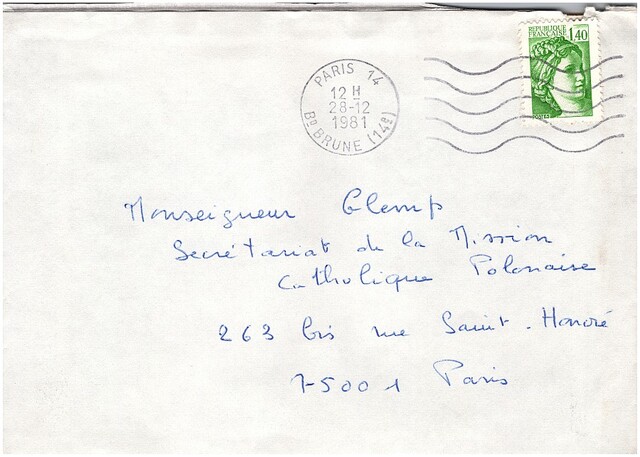 REPUBLIQUE
FRANCAISE
1,40
POSTES
PARIS 14
12 H
28-12
1981
Bd BRUNE (14e)
Monseigneur Glemp
Secrétariat de la Mission
Catholique Polonaise
263 bis rue Saint-Honoré
75001 Paris